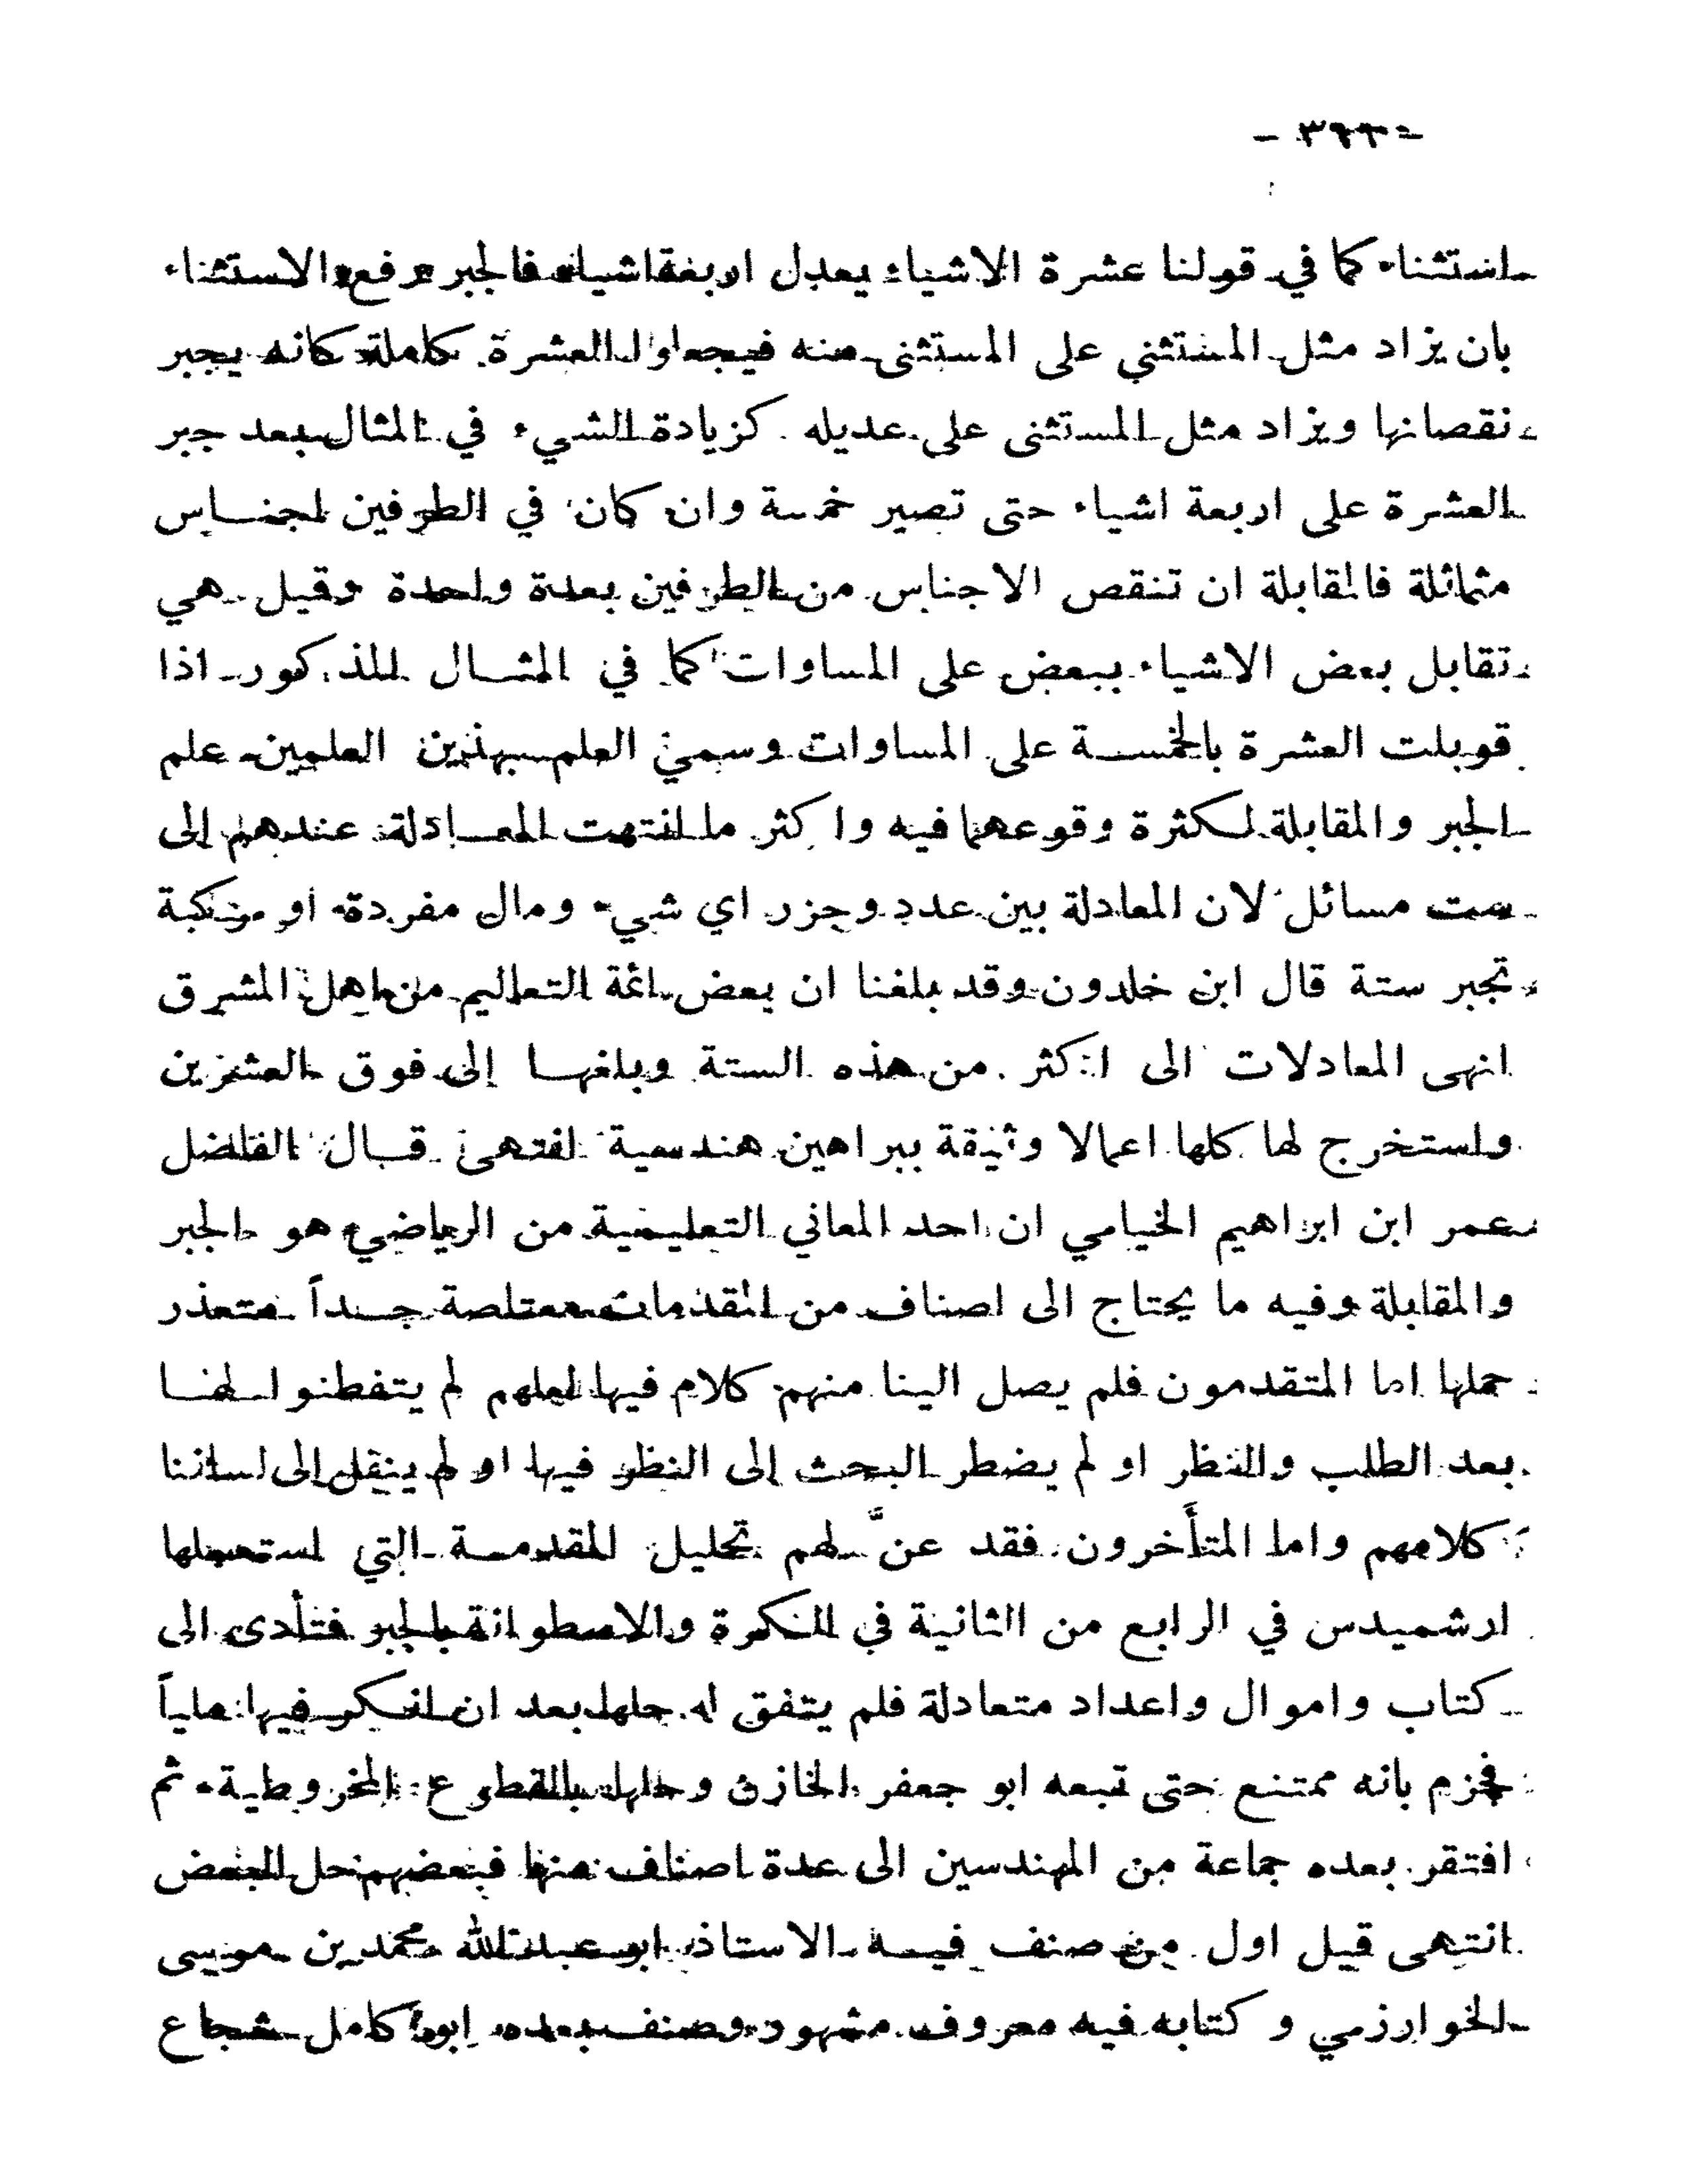 - ٣٩٣ -
استثناء كما في قولنا عشرة الاشياء يعدل اربعة اشياء فالجبر رفع الاستثناء
بان يزاد مثل المستثنى على المستثنى منه فيجعلوا العشرة كاملة كانه يجبر
نقصانها ويزاد مثل المستثنى على عديله كزيادة الشيء في المثال بعد جبر
العشرة على اربعة اشياء حتى تصير خمسة وان كان في الطرفين اجناس
متماثلة فالمقابلة ان تنقص الاجناس من الطرفين بعدة واحدة وقيل هي
تقابل بعض الاشياء ببعض على المساوات كما في المثال المذكور اذا
قوبلت العشرة بالخمسة على المساوات وسمي العلم بهذين العلمين علم
الجبر والمقابلة لكثرة وقوعهما فيه واكثر ما انتهت المعادلة عندهم إلى
ست مسائل لان المعادلة بين عدد وجزر اي شيء ومال مفردة او مركبة
تجبر ستة قال ابن خلدون وقد بلغنا ان بعض ائمة التعاليم من اهل المشرق
انهى المعادلات الى اكثر من هذه الستة وبلغها إلى فوق العشرين
واستخرج لها كلها اعمالا وثيقة ببراهين هندسية انتهى قال الفاضل
عمر ابن ابراهيم الخيامي ان احد المعاني التعليمية من الرياضي هو الجبر
والمقابلة وفيه ما يحتاج الى اصناف من المقدمات معتلصة جداً متعذر
حملها اما المتقدمون فلم يصل الينا منهم كلام فيها لعلهم لم يتفطنوا لها
بعد الطلب والنظر او لم يضطر البحث إلى النظر فيها او لم ينقل إلى لساننا
كلامهم واما المتأخرون فقد عنَّ لهم تحليل المقدمة التي استعملها
ارشميدس في الرابع من الثانية في الكرة والاصطوانة بالجبر فتأدى الى
كتاب واموال واعداد متعادلة فلم يتفق له حلها بعد ان افكر فيها ملياً
فجزم بانه ممتنع حتى تبعه ابو جعفر الخازن وحلها بالقطوع المخروطية ثم
افتقر بعده جماعة من المهندسين الى عدة اصناف منها فبعضهم حل البعض
انتهى قيل اول من صنف فيه الاستاذ ابو عبد الله محمد بن موسى
الخوارزمي و كتابه فيه معروف مشهور وصنف بعده ابو كامل شجاع